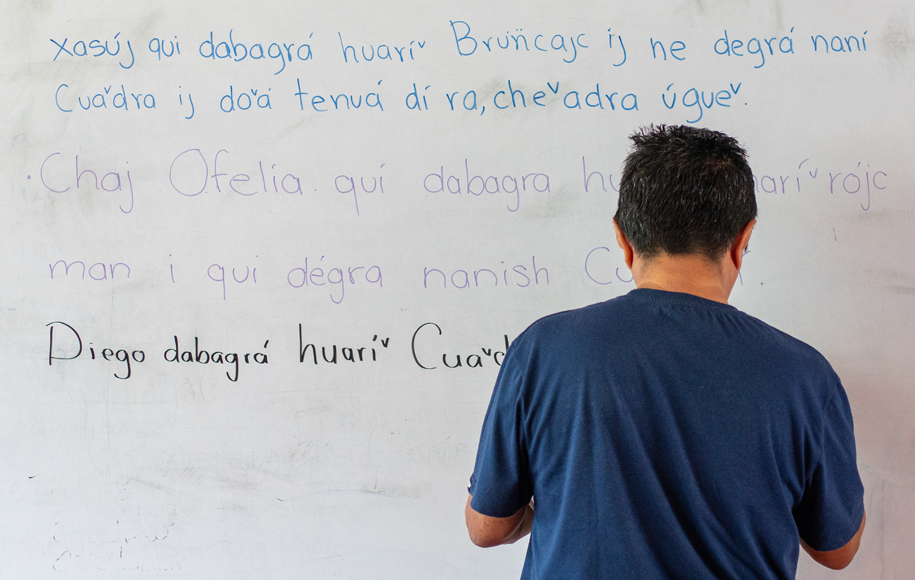 Xasúj qui dabagrá huaríᵛ Brun̈cajc ij ne degrá naní
Cuaᵛdra ij doᵛá tenuá dí ra, cheᵛadra úgueᵛ.
·Chaj Ofelia. quí dabagra huaríᵛ rójc
man i qui dégra nanish
Diego dabagrá huaríᵛ